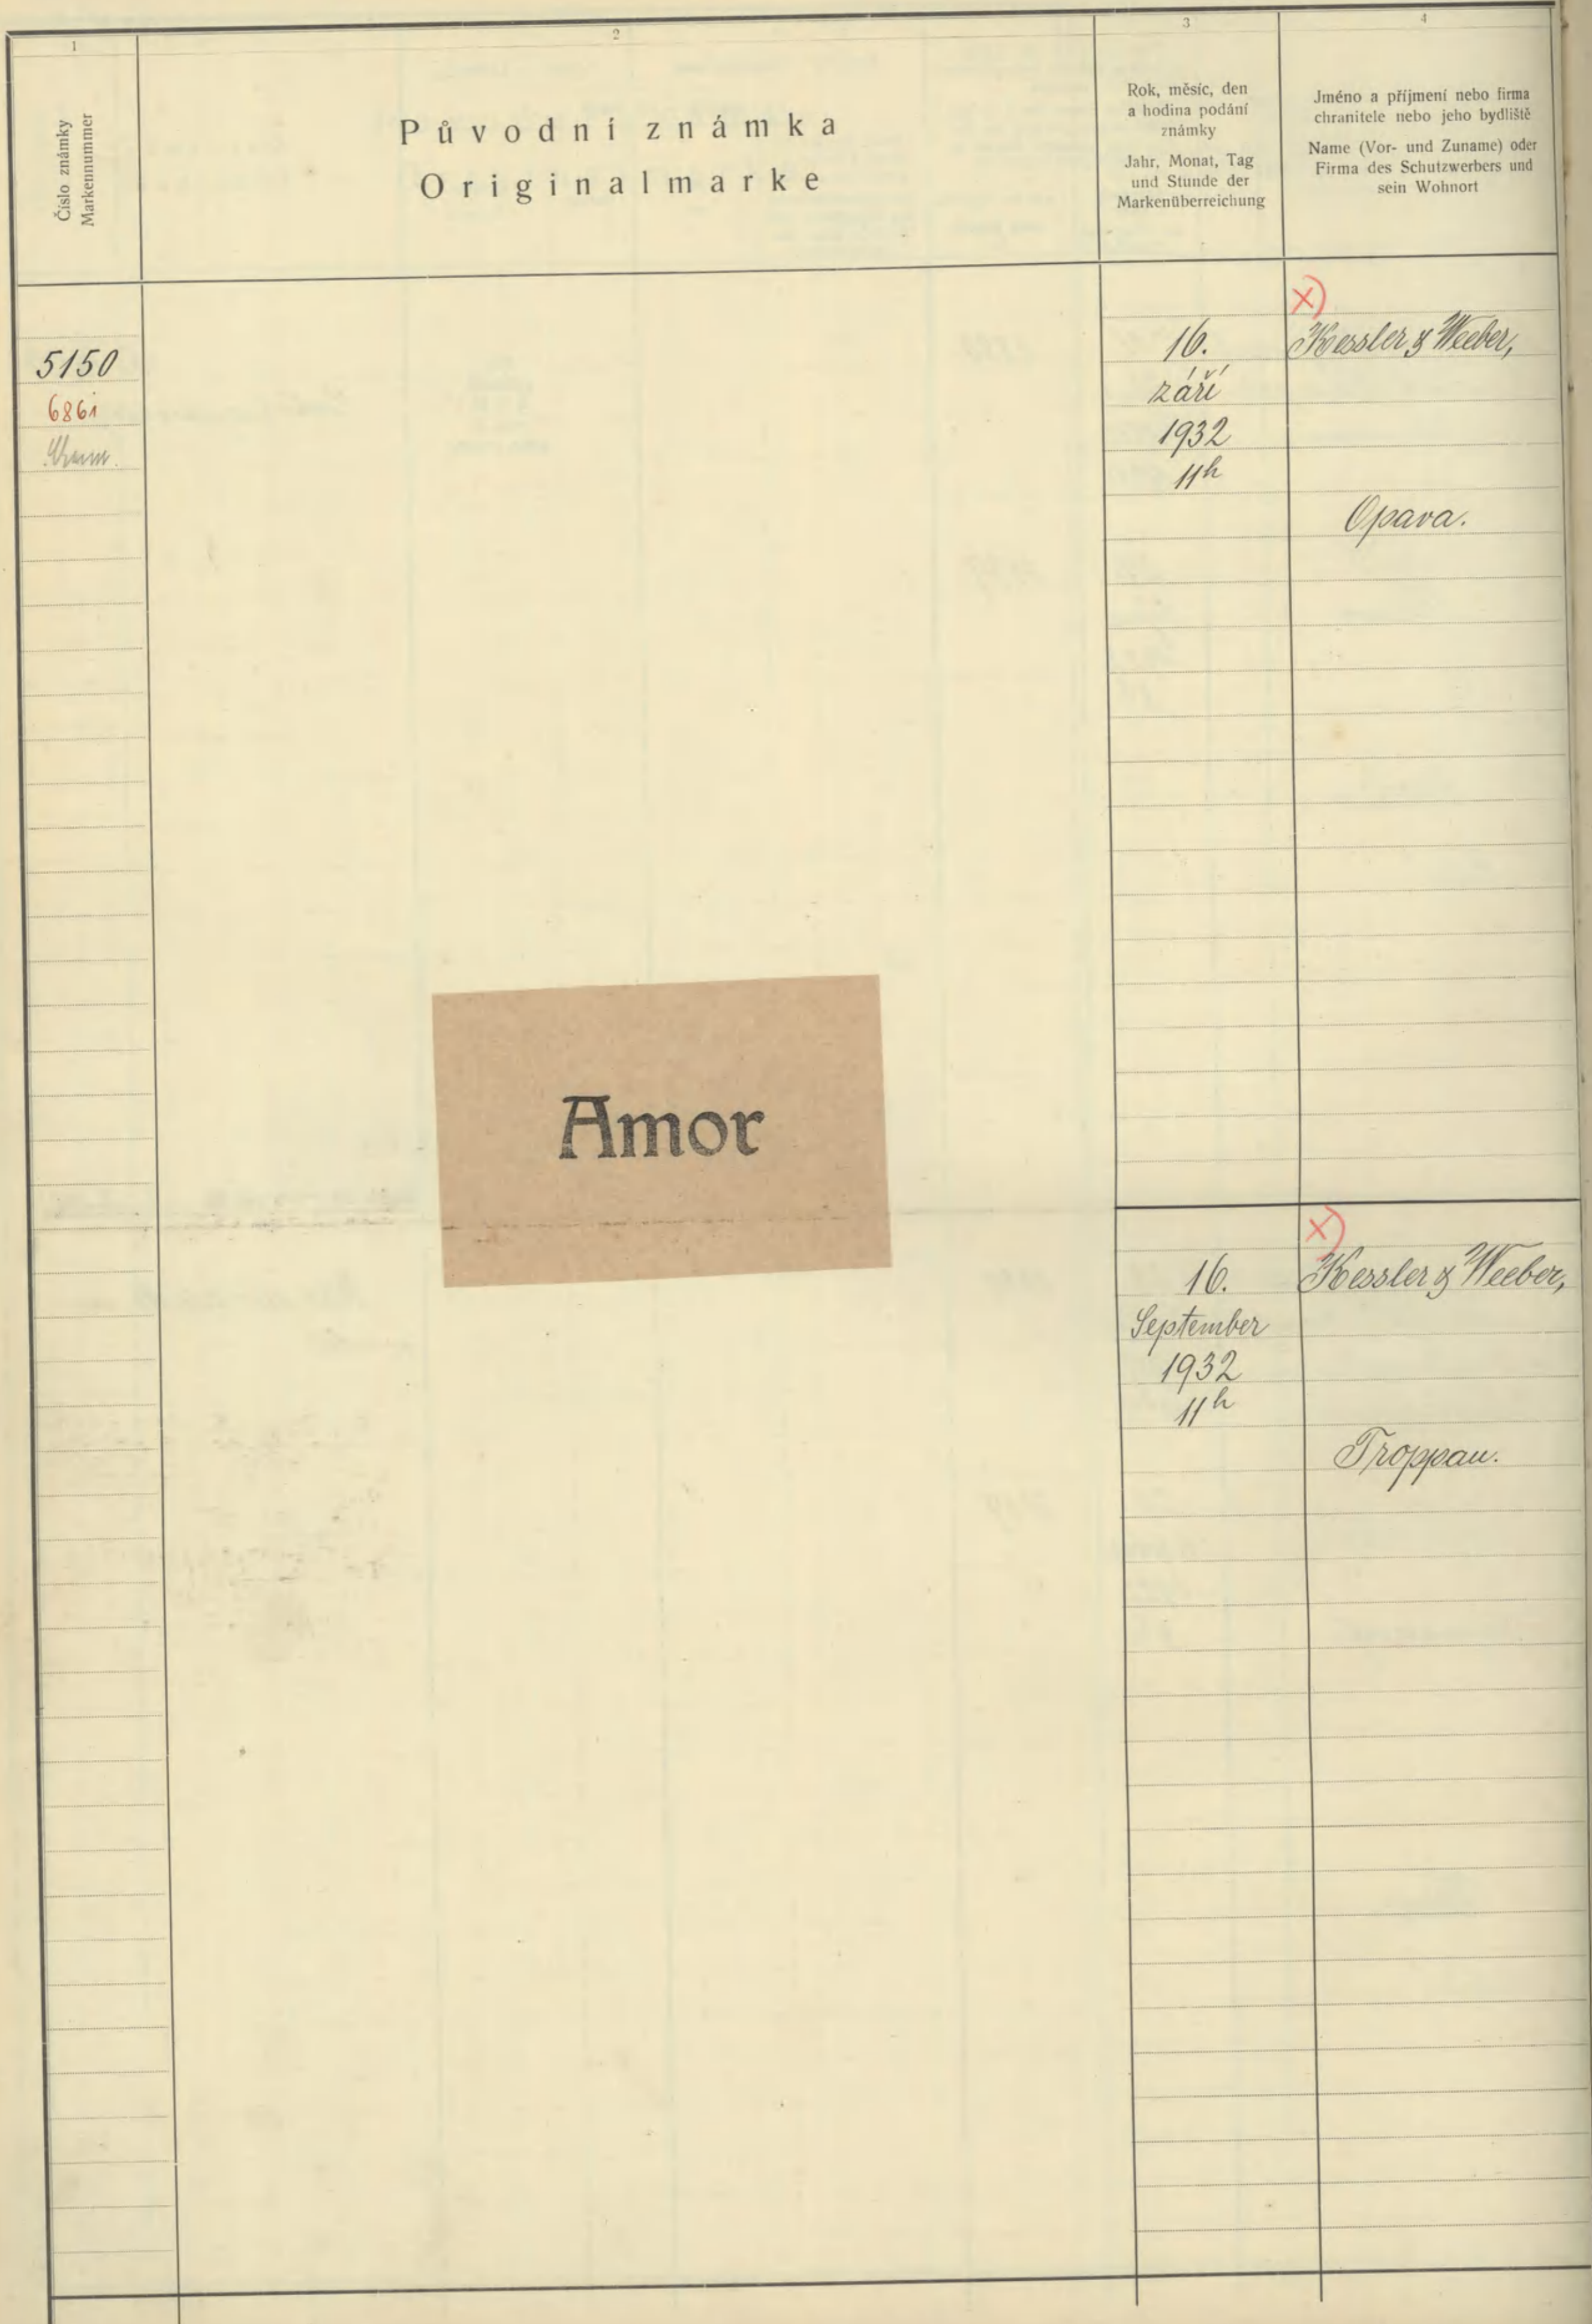 1
2
3
4
Číslo známky
Markennummer
Původní známka
Originalmarke
Rok, měsíc, den
a hodina podání
známky
Jahr, Monat, Tag
und Stunde der
Markenüberreichung
Jméno a příjmení nebo firma
chranitele nebo jeho bydliště
Name (Vor- und Zuname) oder
Firma des Schutzwerbers und
sein Wohnort
5150
6861
16.
září
1932
11h
X)
Kessler & Weeber,
Opava.
Amor
16.
September
1932
11h
X)
Kessler & Weeber,
Troppau.